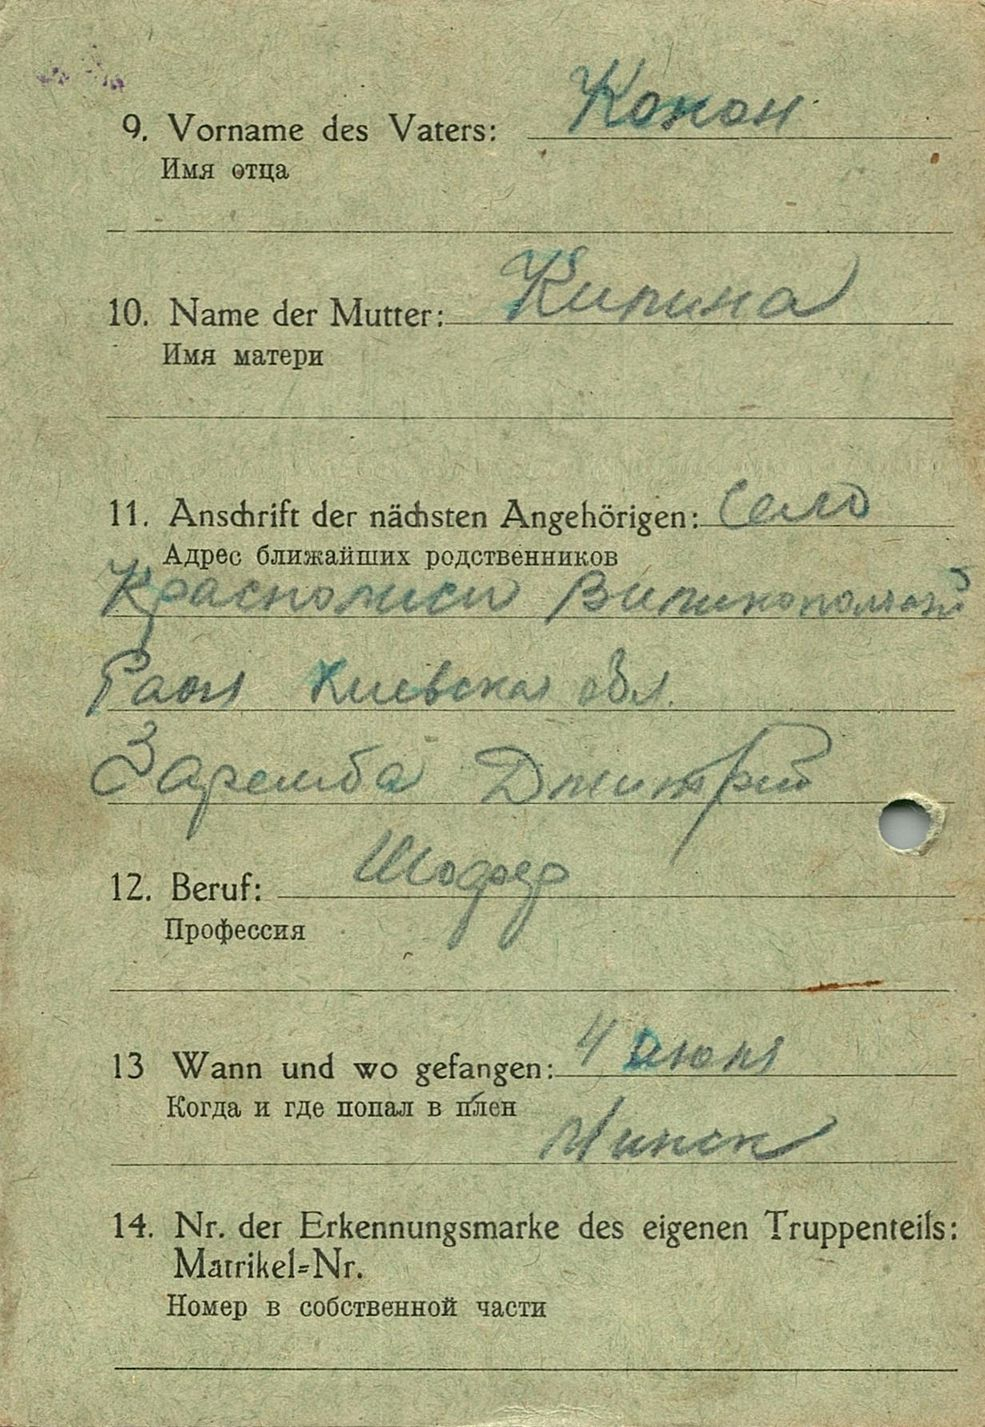 9. Vorname des Vaters: Конон
Имя отца
10. Name der Mutter: Килина
Имя матери
11. Anschrift der nächsten Angehörigen: село
Адрес ближайших родственников
Раон Киевская обл.
Заремба Дмитрий
12. Beruf: Шофер
Профессия
13 Wann und wo gefangen: 4 июля
Когда и где попал в плен
Минск
14. Nr. der Erkennungsmarke des eigenen Truppenteils:
Matrikel=Nr.
Номер в собственной части